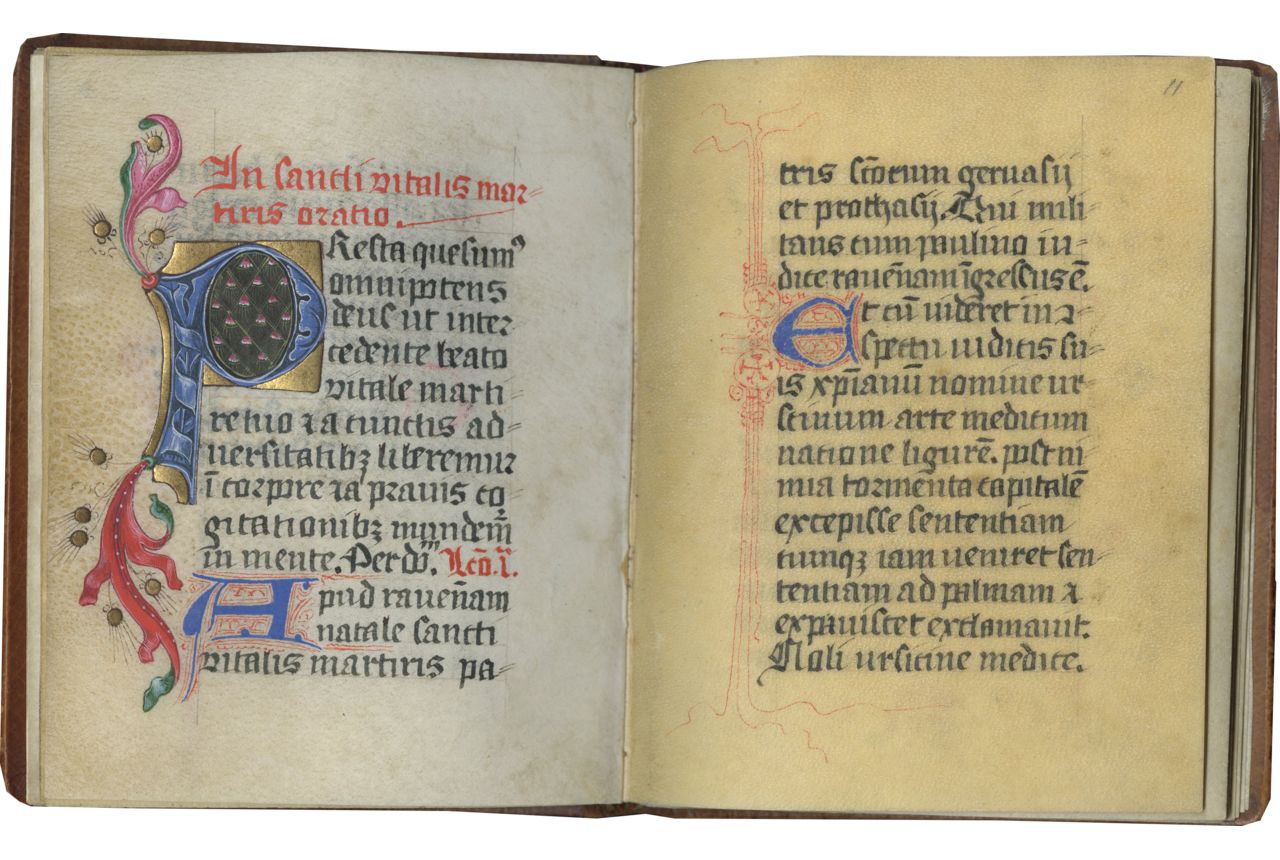 In sancti vitalis mar-
tiris oratio.
PResta quesumꝰ
omnipotens
deus ut inter-
cedente beato
vitale marti
re tuo ⁊ a cunctis ad-
uersitatibꝫ liberemur
ī corpore ⁊ a prauis co-
gitationibꝫ mundem̄
in mente. Per dōm. Lcō.i.
Apud rauen̄am
natale sancti
vitalis martiris pa-
11
tris sc̄orum geruasij
et prothasij. Qui mili-
tans cum paulino iu-
dice rauen̄am īgressus ē.
Et cū videret in ↄ-
spectu iudicis su-
is xp̄ianū nomine ur-
sicinum arte medicum
natione ligurē. post ni-
mia tormenta capitalē
excepisse sententiam
cumqꝫ iam veniret sen-
tentiam ad palmam ⁊
expauisceret exclamauit.
Noli ursicine medice.